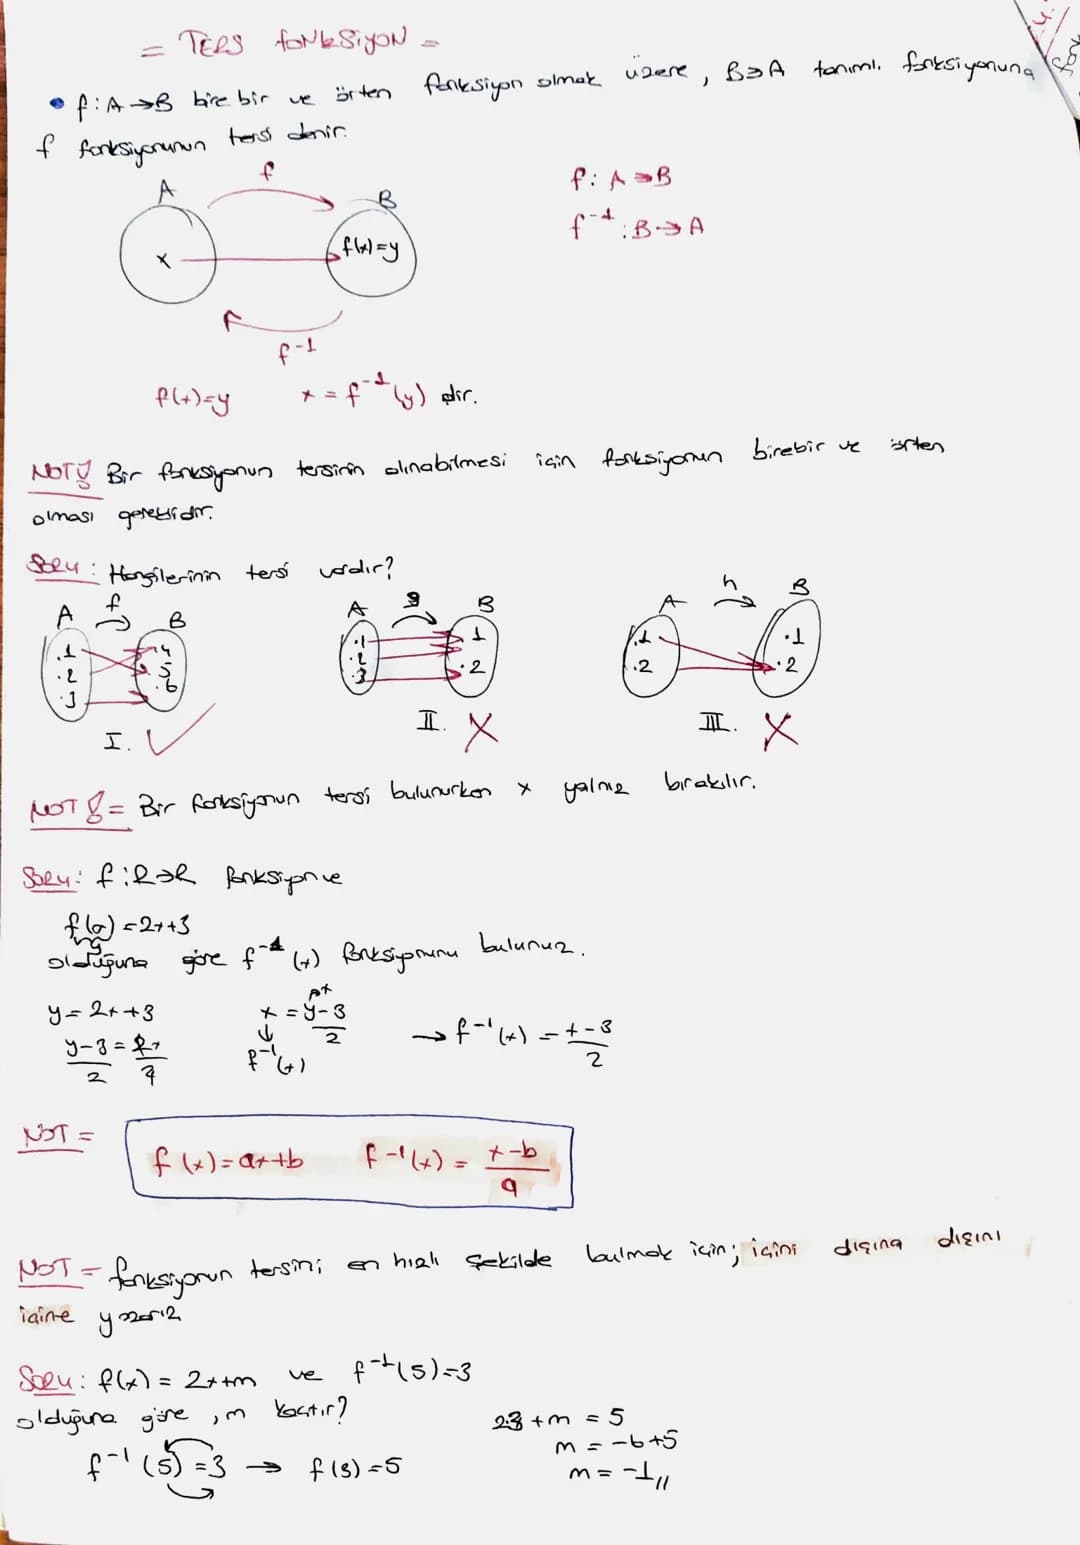 = TERS fONkSİYON =
• f: A→B bire bir ve örten fonksiyon olmak üzere, B→A tanımlı fonksiyonuna
f fonksiyonunun tersi denir.
f
A B
x f(x)=y
f⁻¹
f: A→B
f⁻¹: B→A
f(x)=y x = f⁻¹(y) dir.
NOT! Bir fonksiyonun tersinin alınabilmesi için fonksiyonun birebir ve örten
olması gereklidir.
SORU: Hangilerinin tersi vardır?
A f B A g B A h B
.1 4 .1 1 .1 .1
.2 5 .2 .2 .2 .2
.3 .6 .3
I. ✓ II. X III. X
NOT! = Bir fonksiyonun tersi bulunurken x yalnız bırakılır.
SORU: f: R→R fonksiyon ve
f(x) = 2x+3
y
olduğuna göre f⁻¹(x) fonksiyonunu bulunuz.
y = 2x+3 x = y-3/2 → f⁻¹(x) = x-3/2
y-3/2 = 2x/2 f⁻¹(x)
NOT =
f(x) = ax+b f⁻¹(x) = x-b/a
NOT = fonksiyonun tersini en hızlı şekilde bulmak için; içini dışına dışını
içine yazarız
SORU: f(x) = 2x+m ve f⁻¹(5)=3
olduğuna göre, m kaçtır?
f⁻¹(5) = 3 → f(3) = 5
2.3 + m = 5
m = -6+5
m = -1//